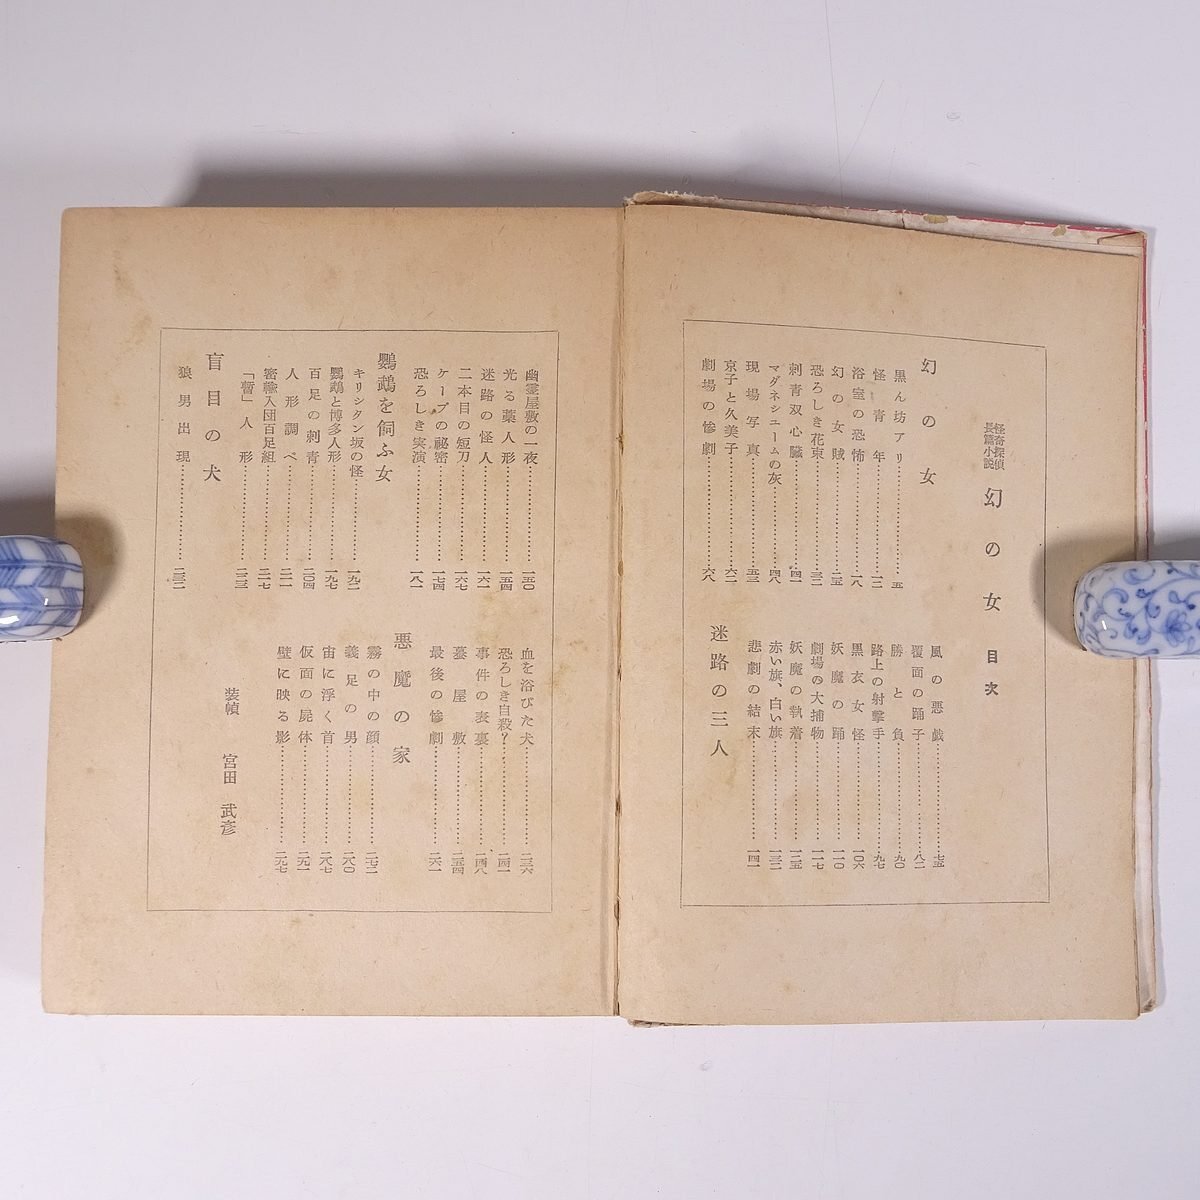 怪奇探偵
長篇小説
幻の女 目次
幻の女
黒ん坊アリ……五
怪青年……一二
浴室の恐怖……一八
幻の女賊……二五
恐ろしき花束……三二
刺青双心臓……四一
マグネシユームの灰……四八
現場写真……五三
京子と久美子……六二
劇場の惨劇……六八
風の悪戯……七五
覆面の踊子……八二
勝と負……九〇
路上の射撃手……九七
黒衣女怪……一〇六
妖魔の踊……一一〇
劇場の大捕物……一一七
妖魔の執着……一二五
赤い旗、白い旗……一三二
悲劇の結末……一四一
迷路の三人
幽霊屋敷の一夜……一五〇
光る藁人形……一五四
迷路の怪人……一六一
二本目の短刀……一六七
ケープの秘密……一七四
恐ろしき実演……一八一
鸚鵡を飼ふ女
キリシタン坂の怪……一九二
鸚鵡と博多人形……一九七
百足の刺青……二〇四
人形調べ……二一一
密輸入団百足組……二一七
「暫」人形……二二三
盲目の犬
狼男出現……二三二
血を浴びた犬……二三六
恐ろしき自殺?……二四一
事件の表裏……二四八
墓屋敷……二五四
最後の惨劇……二六一
悪魔の家
霧の中の顔……二七二
義足の男……二八〇
宙に浮く首……二八七
仮面の屍体……二九一
壁に映る影……二九七
装幀 宮田武彦